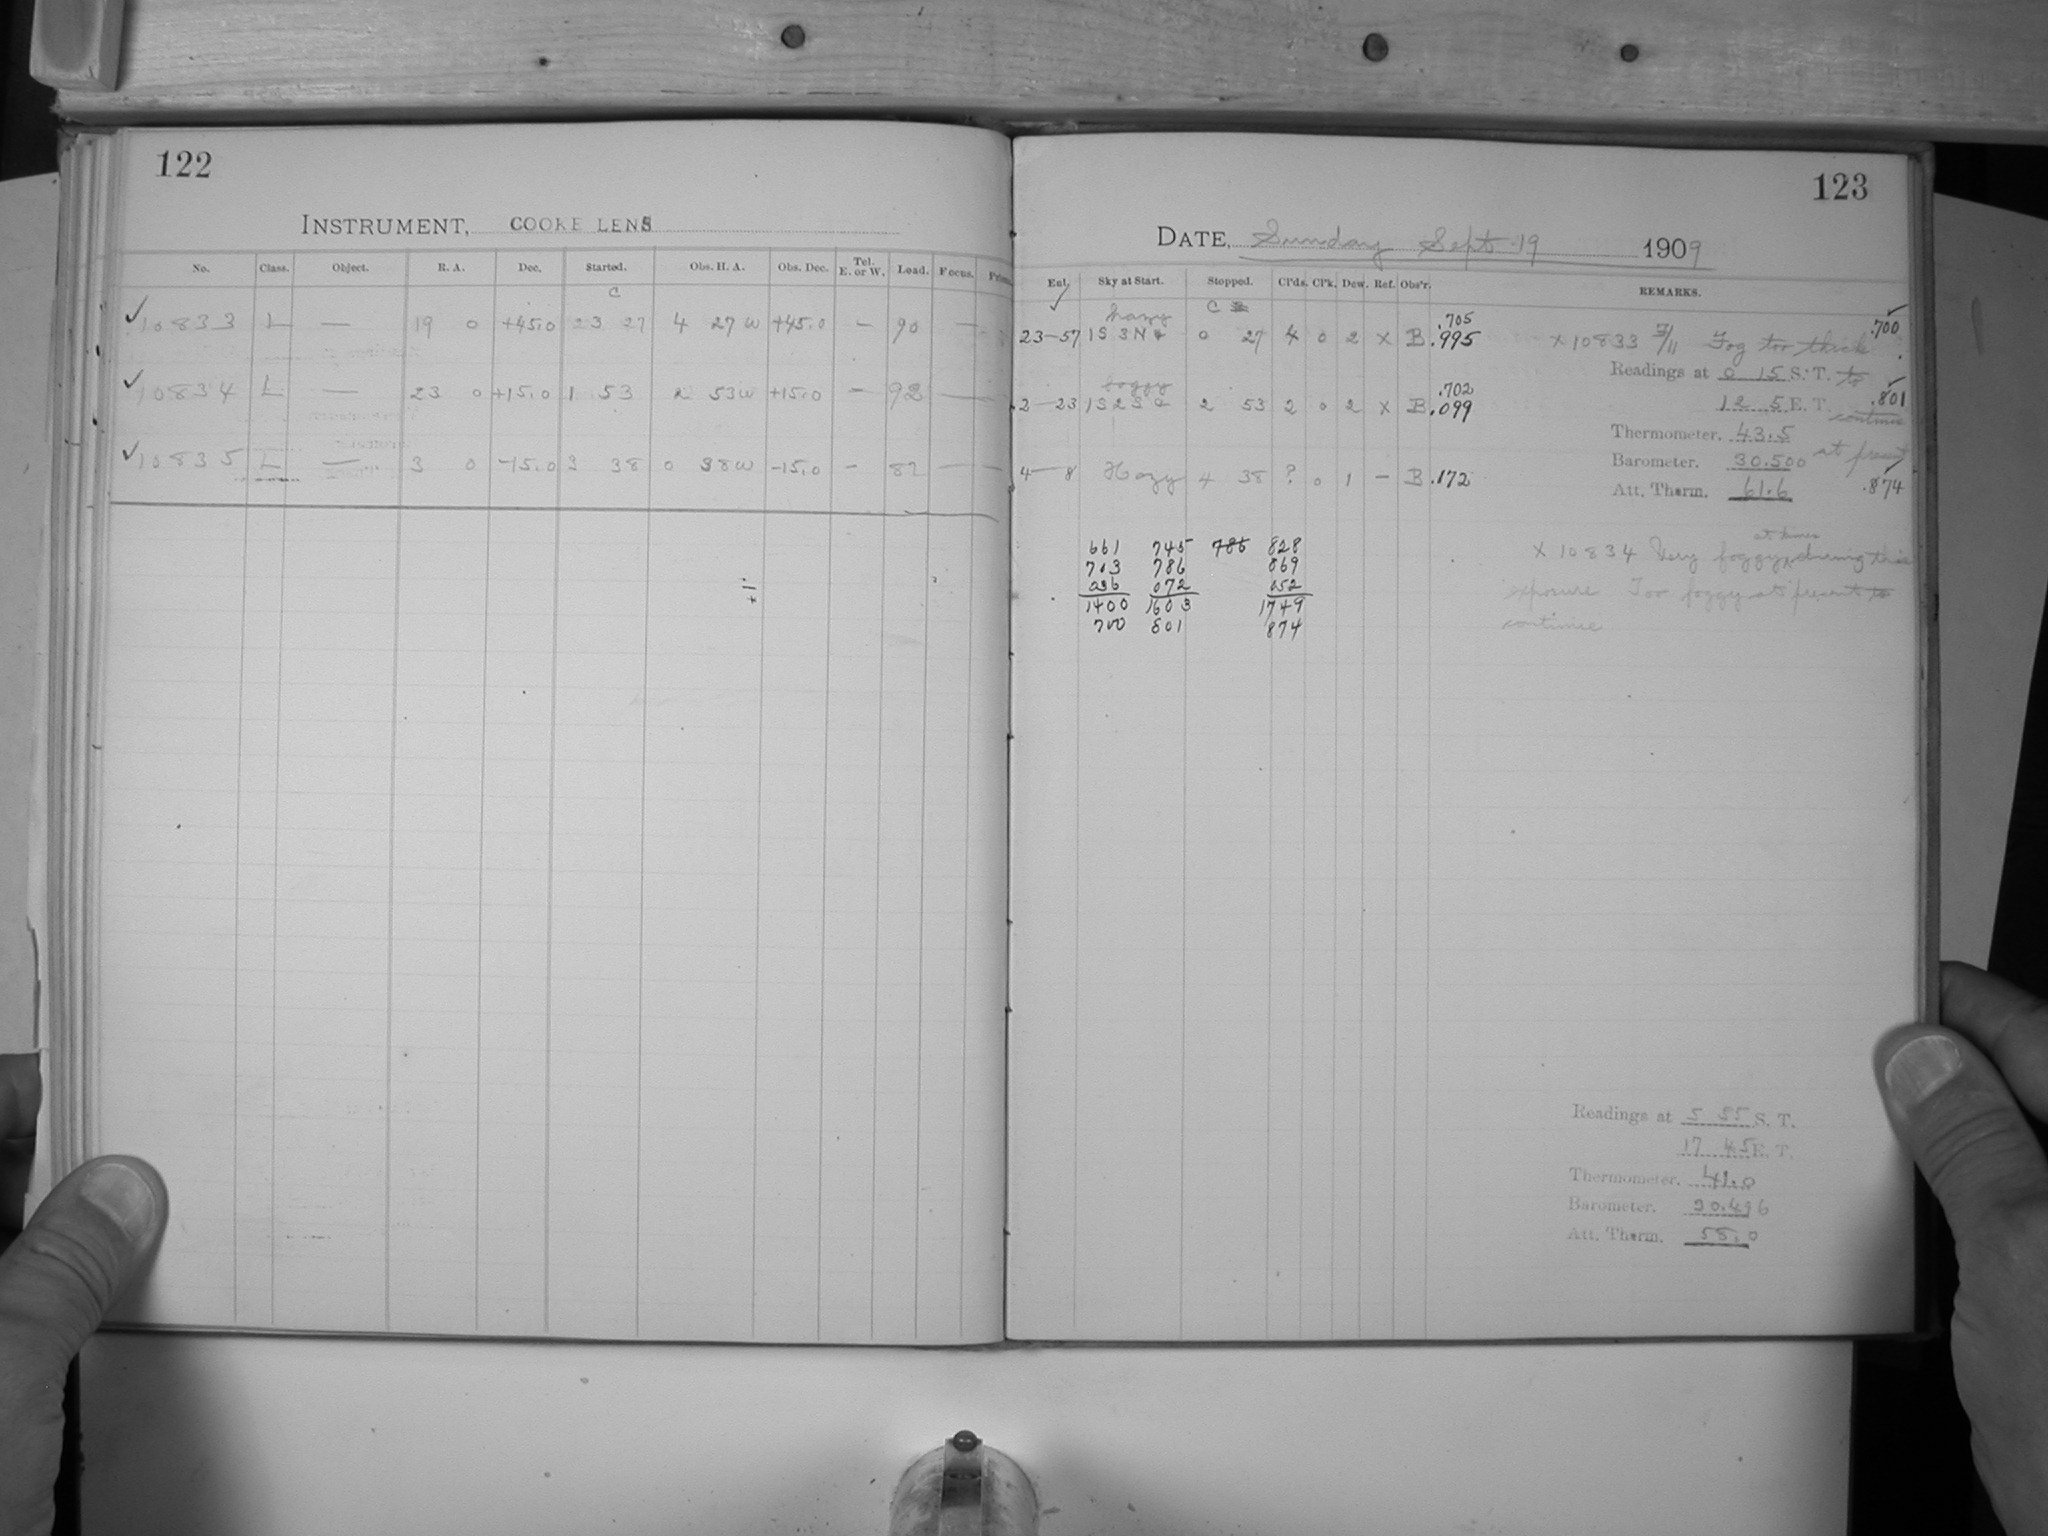 122
INSTRUMENT, COOKE LENS
No. Class. Object. R. A. Dec. Started. Obs. H. A. Obs. Dec. Tel. E. or W. Load. Focus.
C
✓ 10833 L — 19 0 +45.0 23 27 4 27 W +45.0 — 90 —
✓ 10834 L — 23 0 +15.0 1 53 2 53 W +15.0 — 92 —
✓ 10835 L — 3 0 -15.0 3 38 0 38 W -15.0 — 82 — —
123
DATE, Sunday Sept 19 1909
Ent. Sky at Start. Stopped. Cl'ds. Cl'k. Dew. Ref. Obs'r. REMARKS.
✓ hazy C .705 ✓
23—57 1S 3N 0 27 4 0 2 X B .995 X 10833 Fog too thick .700
Readings at 0 15 S. T. to
foggy .702 ✓
2—23 1S 2S 2 53 2 0 2 X B .099 12 5 E. T. .801
continue
Thermometer. 43.5
at present
4—8 Hazy 4 38 ? 0 1 — B .172 Barometer. 30.500
Att. Therm. 61.6 .874
661 745 786 828
703 786 869
036 072 052
1400 1603 1749
700 801 874
at times
X 10834 Very foggy during this
exposure Too foggy at present to
continue
Readings at 5 55 S. T.
17 45 E. T.
Thermometer. 41.0
Barometer. 30.496
Att. Therm. 58.0